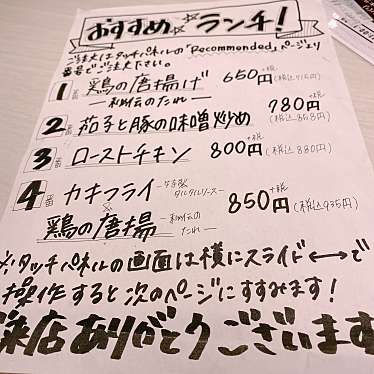 おすすめランチ!
ご注文はタッチパネルの「Recommended」ページより
番号でご注文下さい。
1番 鶏の唐揚げ 650円+税(税込715円)
―秘伝のたれ―
2番 茄子と豚の味噌炒め 780円+税(税込858円)
3番 ローストチキン 800円+税(税込880円)
4番 カキフライ ―自家製タルタルソース―
×
鶏の唐揚 ―秘伝のたれ― 850円+税(税込935円)
※タッチパネルの画面は横にスライド←→で
操作すると次のページにすすみます!
来店ありがとうございます